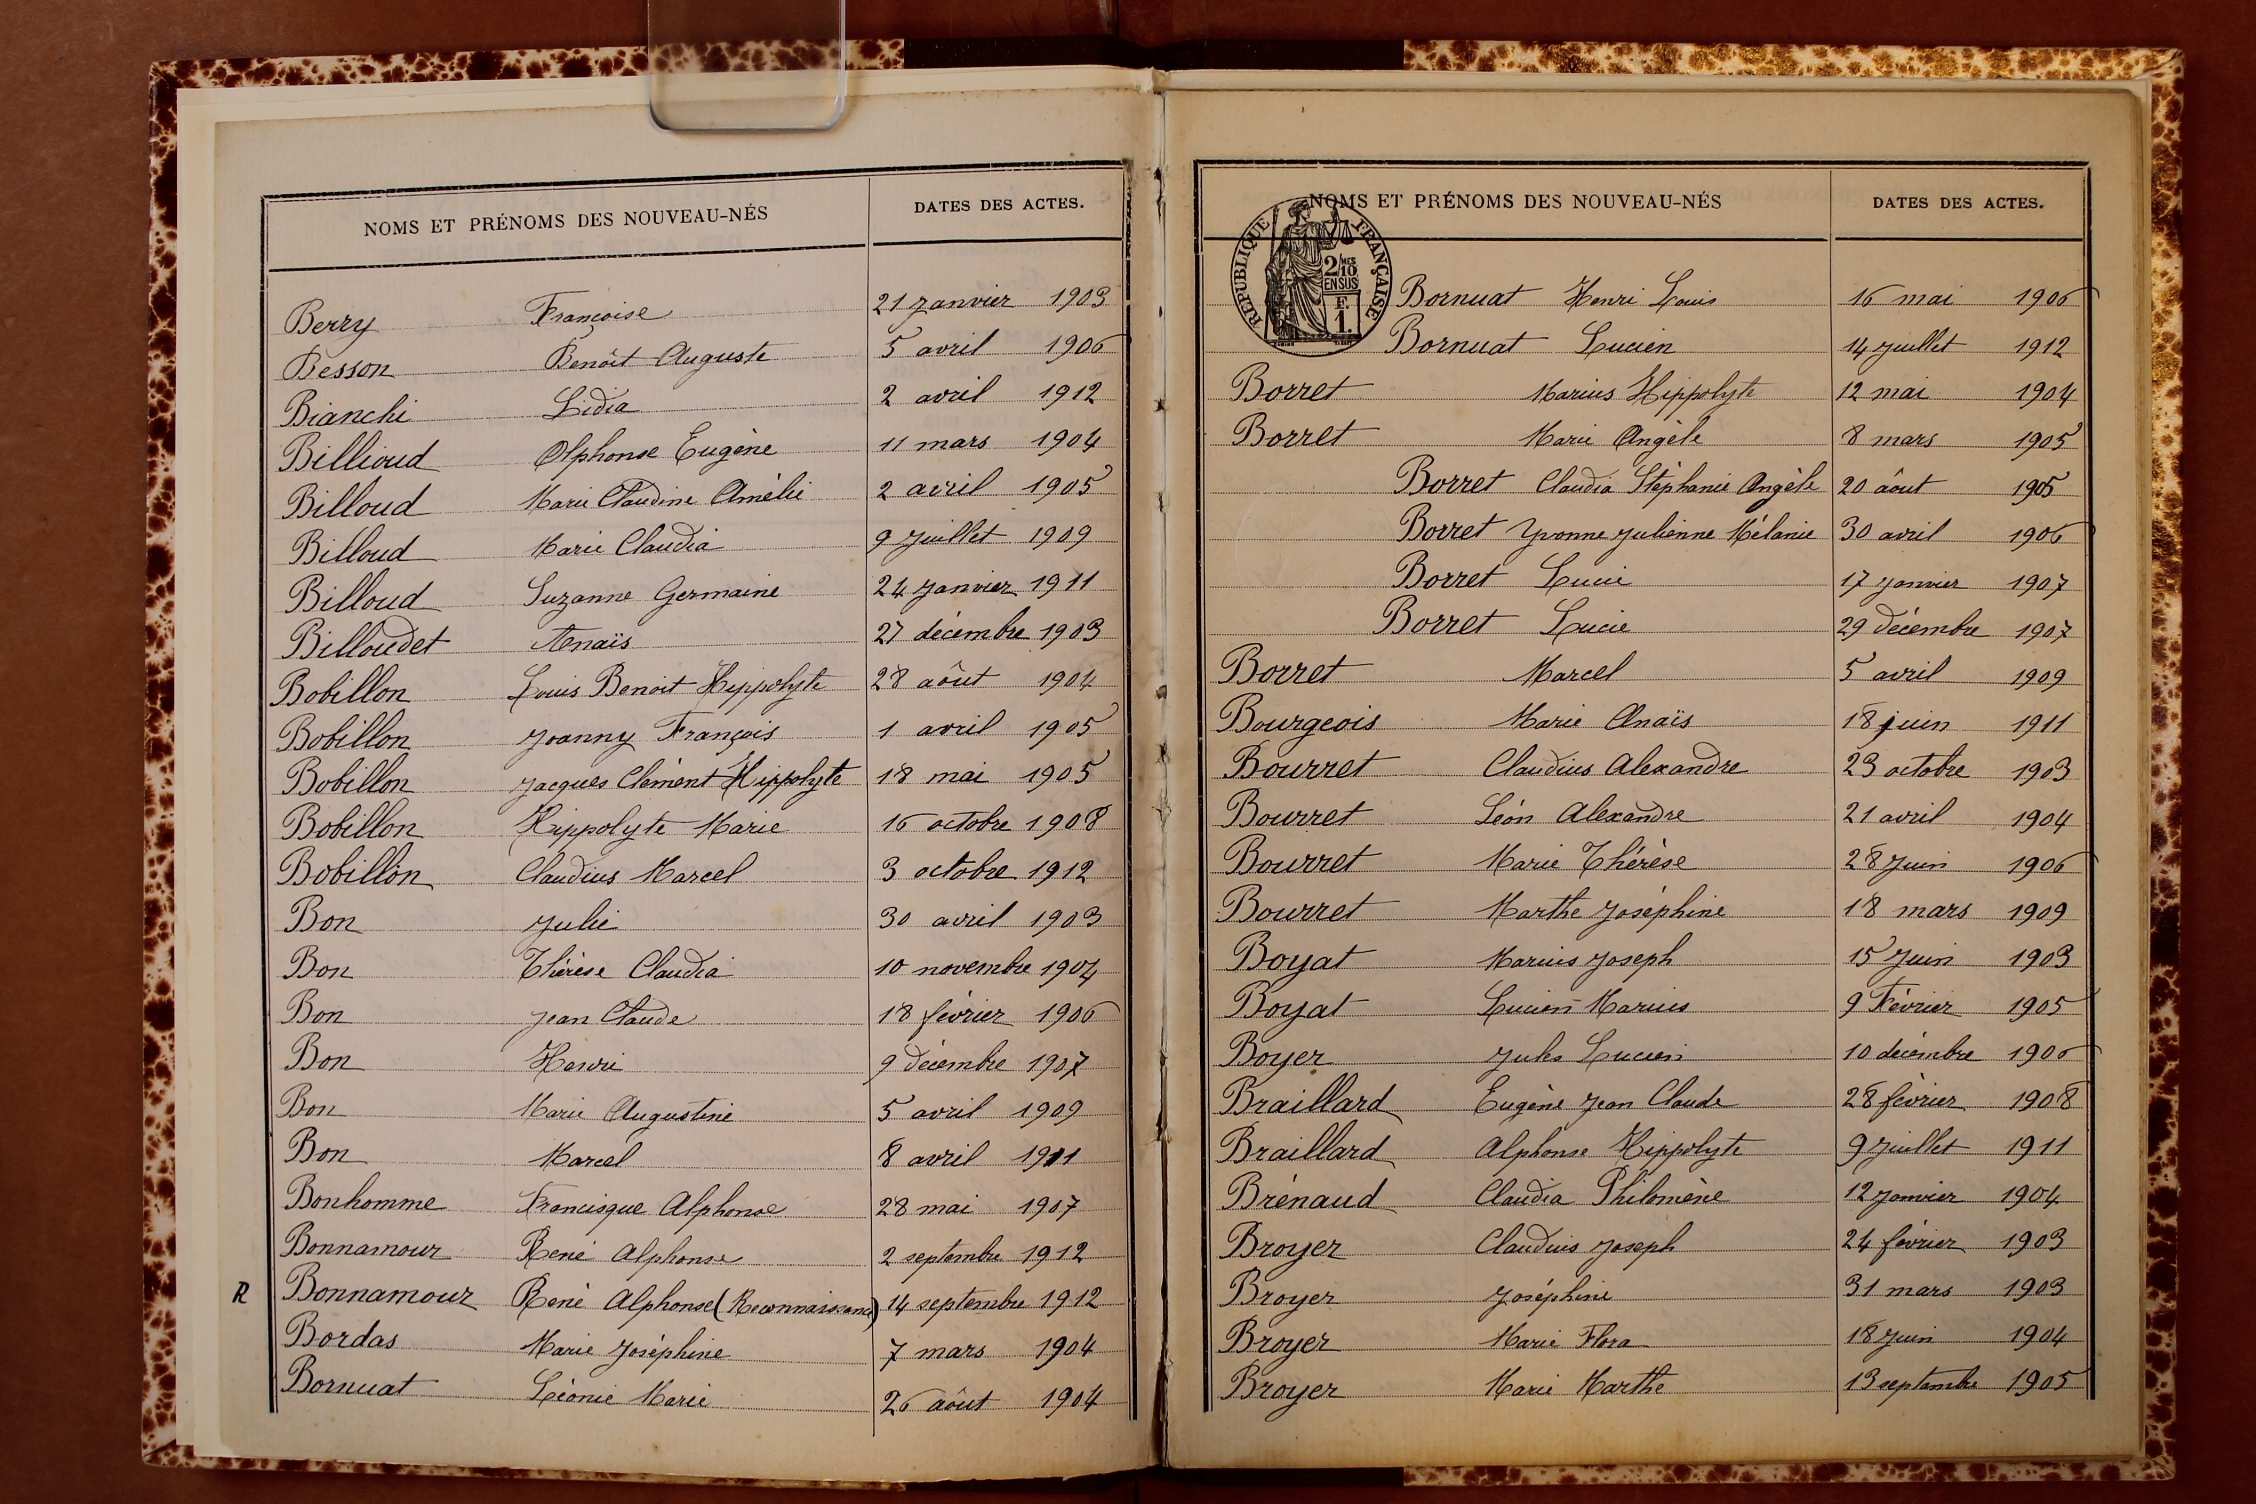 NOMS ET PRÉNOMS DES NOUVEAU-NÉS DATES DES ACTES.
Berry Françoise 21 Janvier 1903
Besson Benoît Auguste 5 avril 1906
Bianchi Lidia 2 avril 1912
Billioud Alphonse Eugène 11 mars 1904
Billoud Marie Claudine Amélie 2 avril 1905
Billoud Marie Claudia 9 Juillet 1909
Billoud Suzanne Germaine 24 Janvier 1911
Billoudet Anaïs 27 décembre 1903
Bobillon Louis Benoit Hippolyte 28 aôut 1904
Bobillon Joanny François 1 avril 1905
Bobillon Jacques Clément Hippolyte 18 mai 1905
Bobillon Hippolyte Marie 16 octobre 1908
Bobillon Claudius Marcel 3 octobre 1912
Bon Julie 30 avril 1903
Bon Thérèse Claudia 10 novembre 1904
Bon Jean Claude 18 février 1906
Bon Henri 9 décembre 1907
Bon Marie Augustine 5 avril 1909
Bon Marcel 8 avril 1911
Bonhomme Francisque Alphonse 28 mai 1907
Bonnamour René Alphonse 2 septembre 1912
R Bonnamour René Alphonse (Reconnaissance) 14 septembre 1912
Bordas Marie Joséphine 7 mars 1904
Bornuat Léonie Marie 26 aôut 1904
NOMS ET PRÉNOMS DES NOUVEAU-NÉS DATES DES ACTES.
REPUBLIQUE FRANÇAISE
2/10 MES
EN SUS
F.
1.
Bornuat Henri Louis 16 mai 1906
Bornuat Lucien 14 Juillet 1912
Borret Marius Hippolyte 12 mai 1904
Borret Marie Angèle 8 mars 1905
Borret Claudia Stéphanie Angèle 20 aôut 1905
Borret Yvonne Julienne Mélanie 30 avril 1906
Borret Lucie 17 Janvier 1907
Borret Lucie 29 décembre 1907
Borret Marcel 5 avril 1909
Bourgeois Marie Anaïs 18 juin 1911
Bourret Claudius Alexandre 23 octobre 1903
Bourret Léon Alexandre 21 avril 1904
Bourret Marie Thérèse 28 Juin 1906
Bourret Marthe Joséphine 18 mars 1909
Boyat Marius Joseph 15 Juin 1903
Boyat Lucien Marius 9 Février 1905
Boyer Jules Lucien 10 décembre 1906
Braillard Eugène Jean Claude 28 février 1908
Braillard Alphonse Hippolyte 9 Juillet 1911
Brénaud Claudia Philomène 12 Janvier 1904
Broyer Claudius Joseph 24 février 1903
Broyer Joséphine 31 mars 1903
Broyer Marie Flora 18 Juin 1904
Broyer Marie Marthe 13 septembre 1905